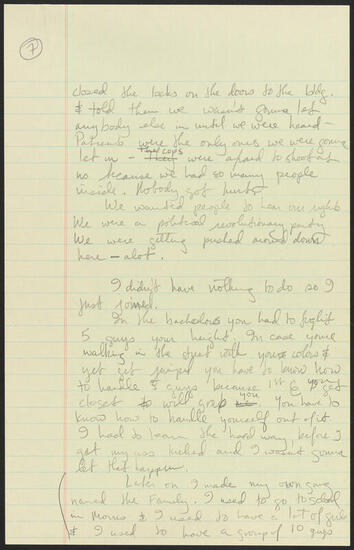 7
closed the locks on the doors to the bldg.
& told them we wasn't gonna let
anybody else in until we were heard -
Patients were the only ones we were gonna
let in - The cops were afraid to shoot at
us because we had so many people
inside. Nobody got hurt.
We wanted people to hear our rights
We were a political revolutionary party
We were getting pushed around down
here - alot.
I didn't have nothing to do so I
just joined.
In the bachelors you had to fight
5 guys your height. In case you're
walking in the street with your colors &
get jumped you have to know how
to handle 5 guys because 1st
closest will grab you You have to
know how to handle yourself out of it.
I had to learn the hard way before I
got my ass kicked and I wasn't gonna
let that happen.
Later on I made my own gang
named the Family. I used to go to school
in Morris & I used to have a lot of girls
& I used to have a group of 10 guys